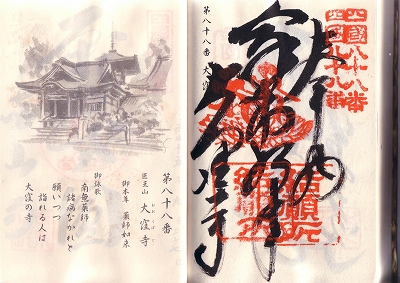 第八十八番
医王山
大窪寺
おおくぼじ
御本尊 薬師如来
御詠歌
南無薬師
諸病なかれと
願いつつ
詣れる人は
大窪の寺
第八十八番 大窪
四國八十八番
奉納
大窪寺
結願所